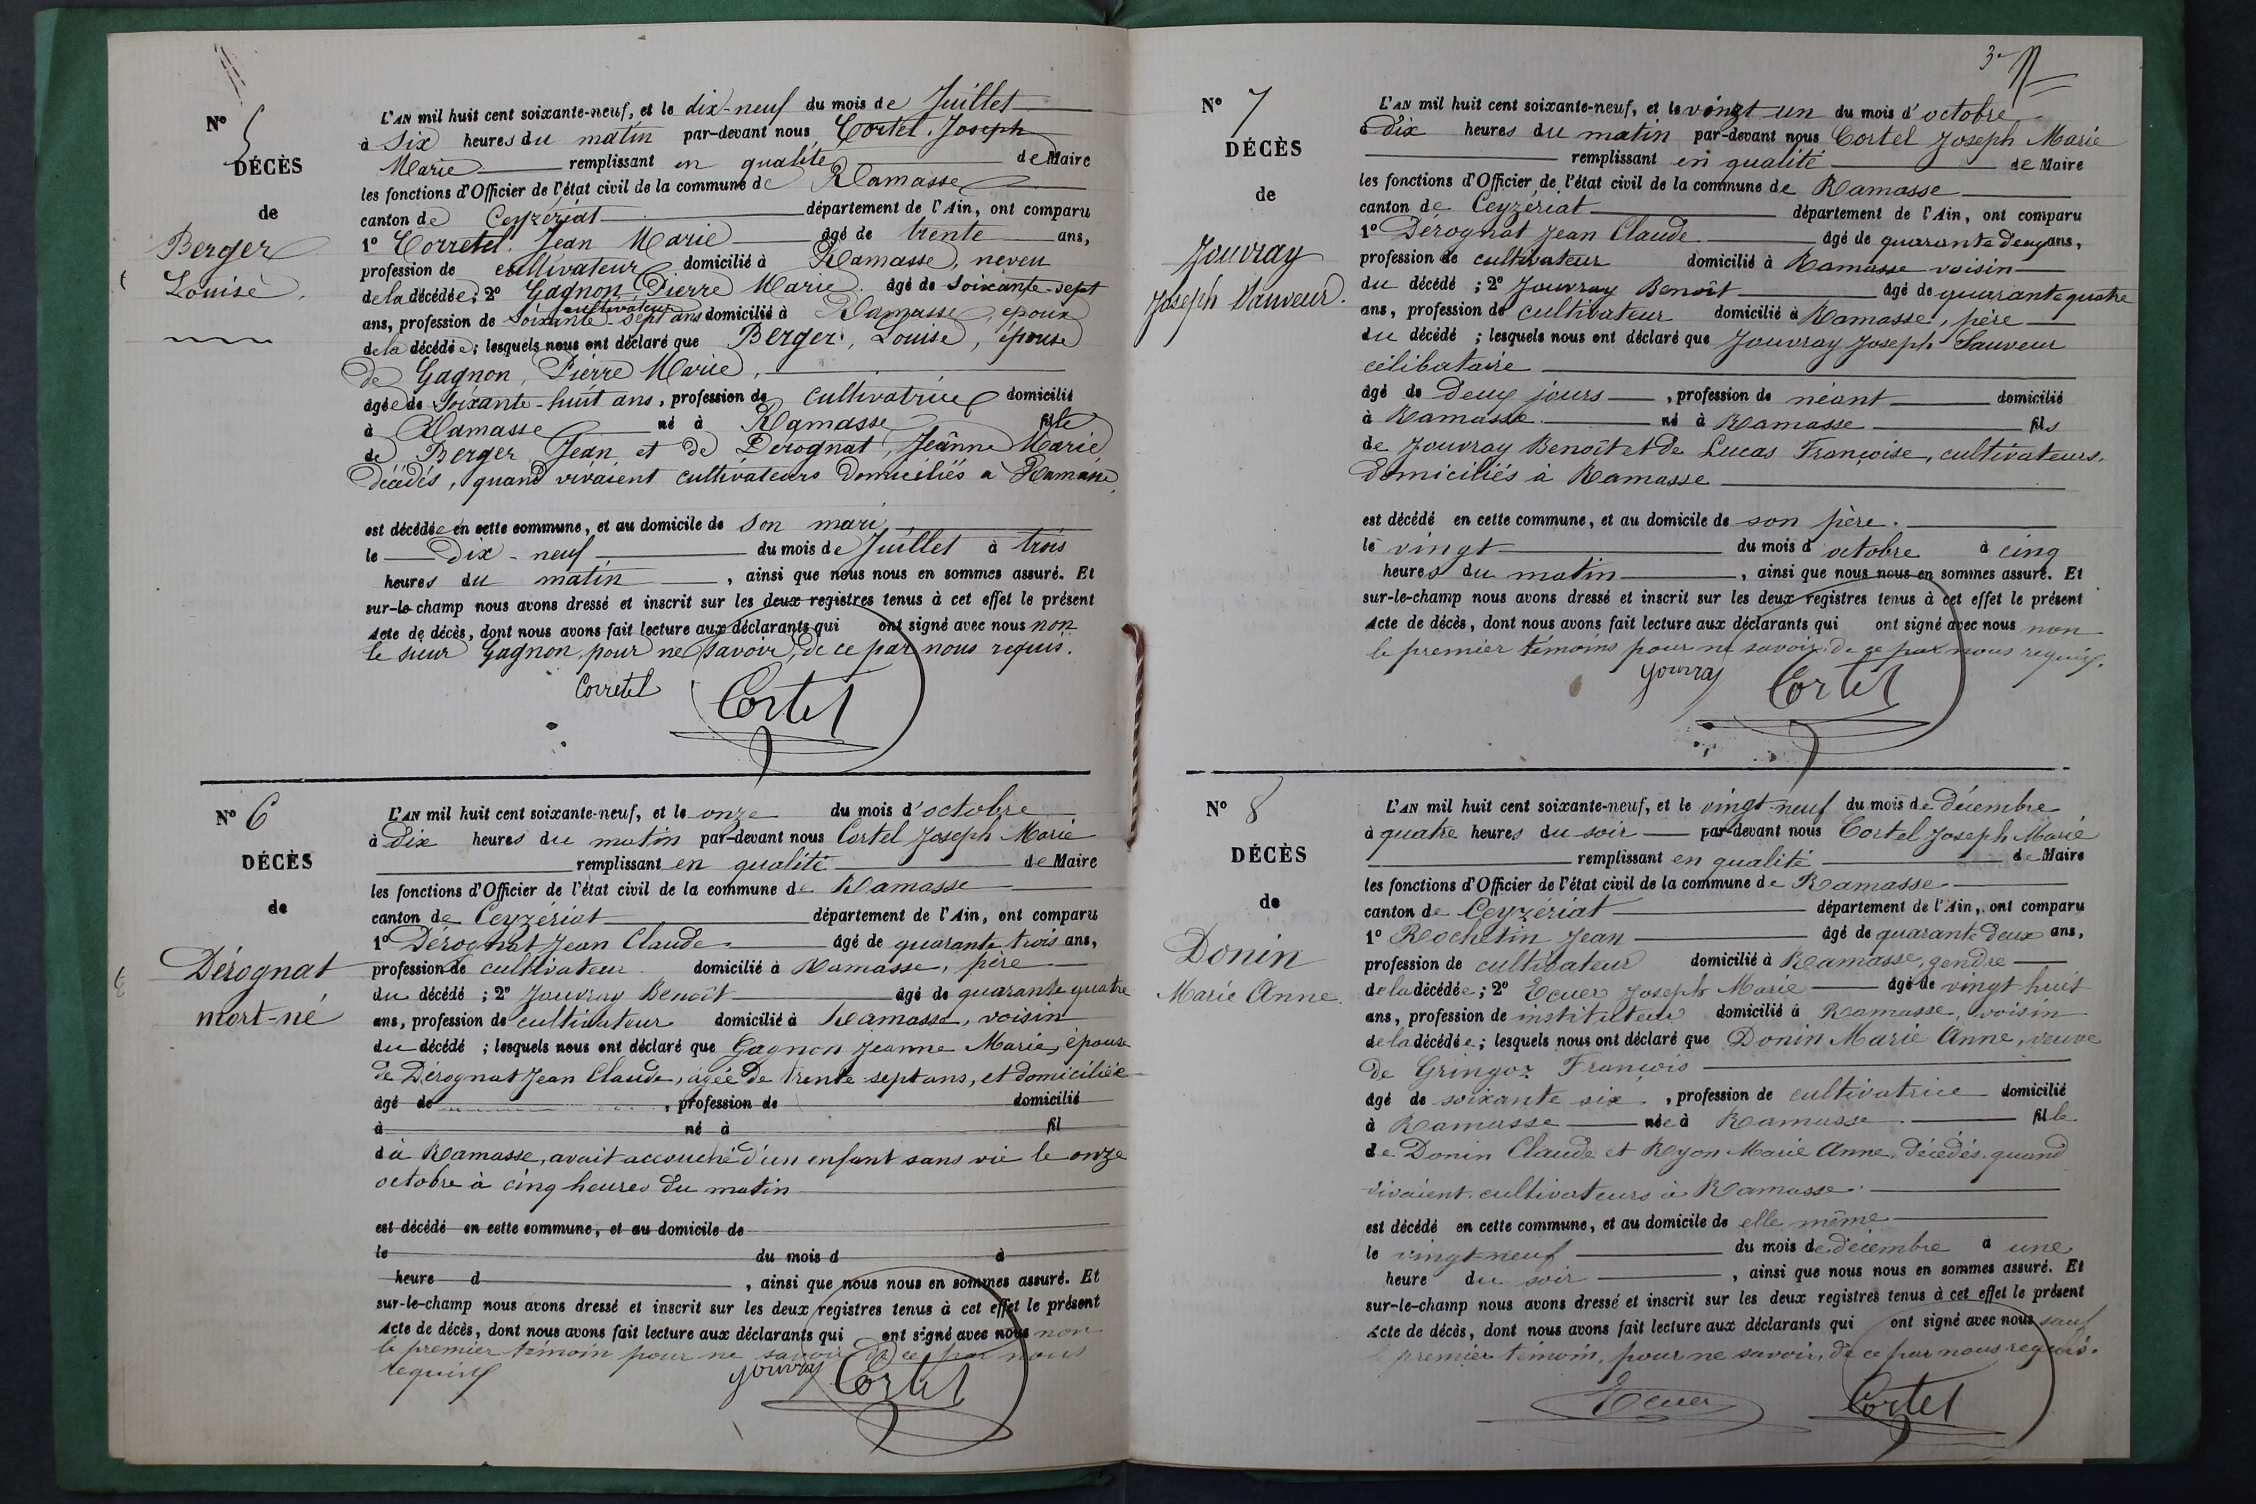 N° 5
DÉCÈS
de
Berger
Louise.
L'AN mil huit cent soixante-neuf, et le dix-neuf du mois de Juillet
à Six heures du matin par-devant nous Cortel, Joseph
Marie remplissant en qualité de Maire
les fonctions d'Officier de l'état civil de la commune de Ramasse
canton de Ceyzériat département de l'Ain, ont comparu
1° Corretel Jean Marie âgé de trente ans,
profession de cultivateur domicilié à Ramasse, neveu
de la décédée; 2° Gagnon Pierre Marie âgé de Soixante-sept
cultivateur
ans, profession de Soixante-sept ans domicilié à Ramasse, époux
de la décédée; lesquels nous ont déclaré que Berger, Louise, épouse
de Gagnon, Pierre Marie,
âgée de Soixante-huit ans, profession de cultivatrice domicilié
à Ramasse né à Ramasse fille
de Berger Jean et de Derognat, Jeanne Marie
décédés, quand vivaient cultivateurs domiciliés a Ramasse
est décédée en cette commune, et au domicile de son mari
le dix-neuf du mois de Juillet à trois
heures du matin, ainsi que nous nous en sommes assuré. Et
sur-le-champ nous avons dressé et inscrit sur les deux registres tenus à cet effet le présent
Acte de décès, dont nous avons fait lecture aux déclarants qui ont signé avec nous non
le sieur Gagnon pour ne savoir, de ce par nous requis.
Corretel Cortel
N° 6
DÉCÈS
de
Dérognat
mort-né
L'AN mil huit cent soixante-neuf, et le onze du mois d'octobre
à dix heures du matin par-devant nous Cortel Joseph Marie
remplissant en qualité de Maire
les fonctions d'Officier de l'état civil de la commune de Ramasse
canton de Ceyzériat département de l'Ain, ont comparu
1° Dérognat Jean Claude âgé de quarante trois ans,
profession de cultivateur domicilié à Ramasse, père
du décédé; 2° Jouvray Benoît âgé de quarante quatre
ans, profession de cultivateur domicilié à Ramasse, voisin
du décédé; lesquels nous ont déclaré que Gagnon Jeanne Marie, épouse
de Dérognat Jean Claude, agée de trente sept ans, et domiciliée
âgé de, profession de domicilié
à né à fil
d à Ramasse, avait accouché d'un enfant sans vie le onze
octobre à cinq heures du matin
est décédé en cette commune, et au domicile de
le du mois d à
heure d, ainsi que nous nous en sommes assuré. Et
sur-le-champ nous avons dressé et inscrit sur les deux registres tenus à cet effet le présent
Acte de décès, dont nous avons fait lecture aux déclarants qui ont signé avec nous non
le premier témoin pour ne savoir de ce par nous
requis
Jouvray Cortel
3e
N° 7
DÉCÈS
de
Jouvray
Joseph Sauveur.
L'AN mil huit cent soixante-neuf, et le vingt un du mois d'octobre
à dix heures du matin par-devant nous Cortel Joseph Marie
remplissant en qualité de Maire
les fonctions d'Officier de l'état civil de la commune de Ramasse
canton de Ceyzériat département de l'Ain, ont comparu
1° Dérognat Jean Claude âgé de quarante deux ans,
profession de cultivateur domicilié à Ramasse voisin
du décédé; 2° Jouvray Benoît âgé de quarante quatre
ans, profession de cultivateur domicilié à Ramasse, père
du décédé; lesquels nous ont déclaré que Jouvray Joseph Sauveur
célibataire
âgé de deux jours, profession de néant domicilié
à Ramasse né à Ramasse fils
de Jouvray Benoît et de Lucas Françoise, cultivateurs,
domiciliés à Ramasse
est décédé en cette commune, et au domicile de son père.
le vingt du mois d octobre à cinq
heures du matin, ainsi que nous nous en sommes assuré. Et
sur-le-champ nous avons dressé et inscrit sur les deux registres tenus à cet effet le présent
Acte de décès, dont nous avons fait lecture aux déclarants qui ont signé avec nous non
le premier témoins pour ne savoir de ce par nous requis.
Jouvray Cortel
N° 8
DÉCÈS
de
Donin
Marie Anne.
L'AN mil huit cent soixante-neuf, et le vingt neuf du mois de décembre
à quatre heures du soir par-devant nous Cortel Joseph Marie
remplissant en qualité de Maire
les fonctions d'Officier de l'état civil de la commune de Ramasse
canton de Ceyzériat département de l'Ain, ont comparu
1° Rochetin Jean âgé de quarante deux ans,
profession de cultivateur domicilié à Ramasse, gendre
de la décédée; 2° Ecuer Joseph Marie âgé de vingt huit
ans, profession de instituteur domicilié à Ramasse, voisin
de la décédée; lesquels nous ont déclaré que Donin Marie Anne, veuve
de Gringoz François
âgé de soixante six, profession de cultivatrice domicilié
à Ramasse née à Ramasse fille
de Donin Claude et Royon Marie Anne, décédés quand
vivaient cultivateurs à Ramasse
est décédé en cette commune, et au domicile de elle même
le vingt neuf du mois de décembre à une
heure du soir, ainsi que nous nous en sommes assuré. Et
sur-le-champ nous avons dressé et inscrit sur les deux registres tenus à cet effet le présent
Acte de décès, dont nous avons fait lecture aux déclarants qui ont signé avec nous sauf
le premier témoin, pour ne savoir, de ce par nous requis.
Ecuer Cortel